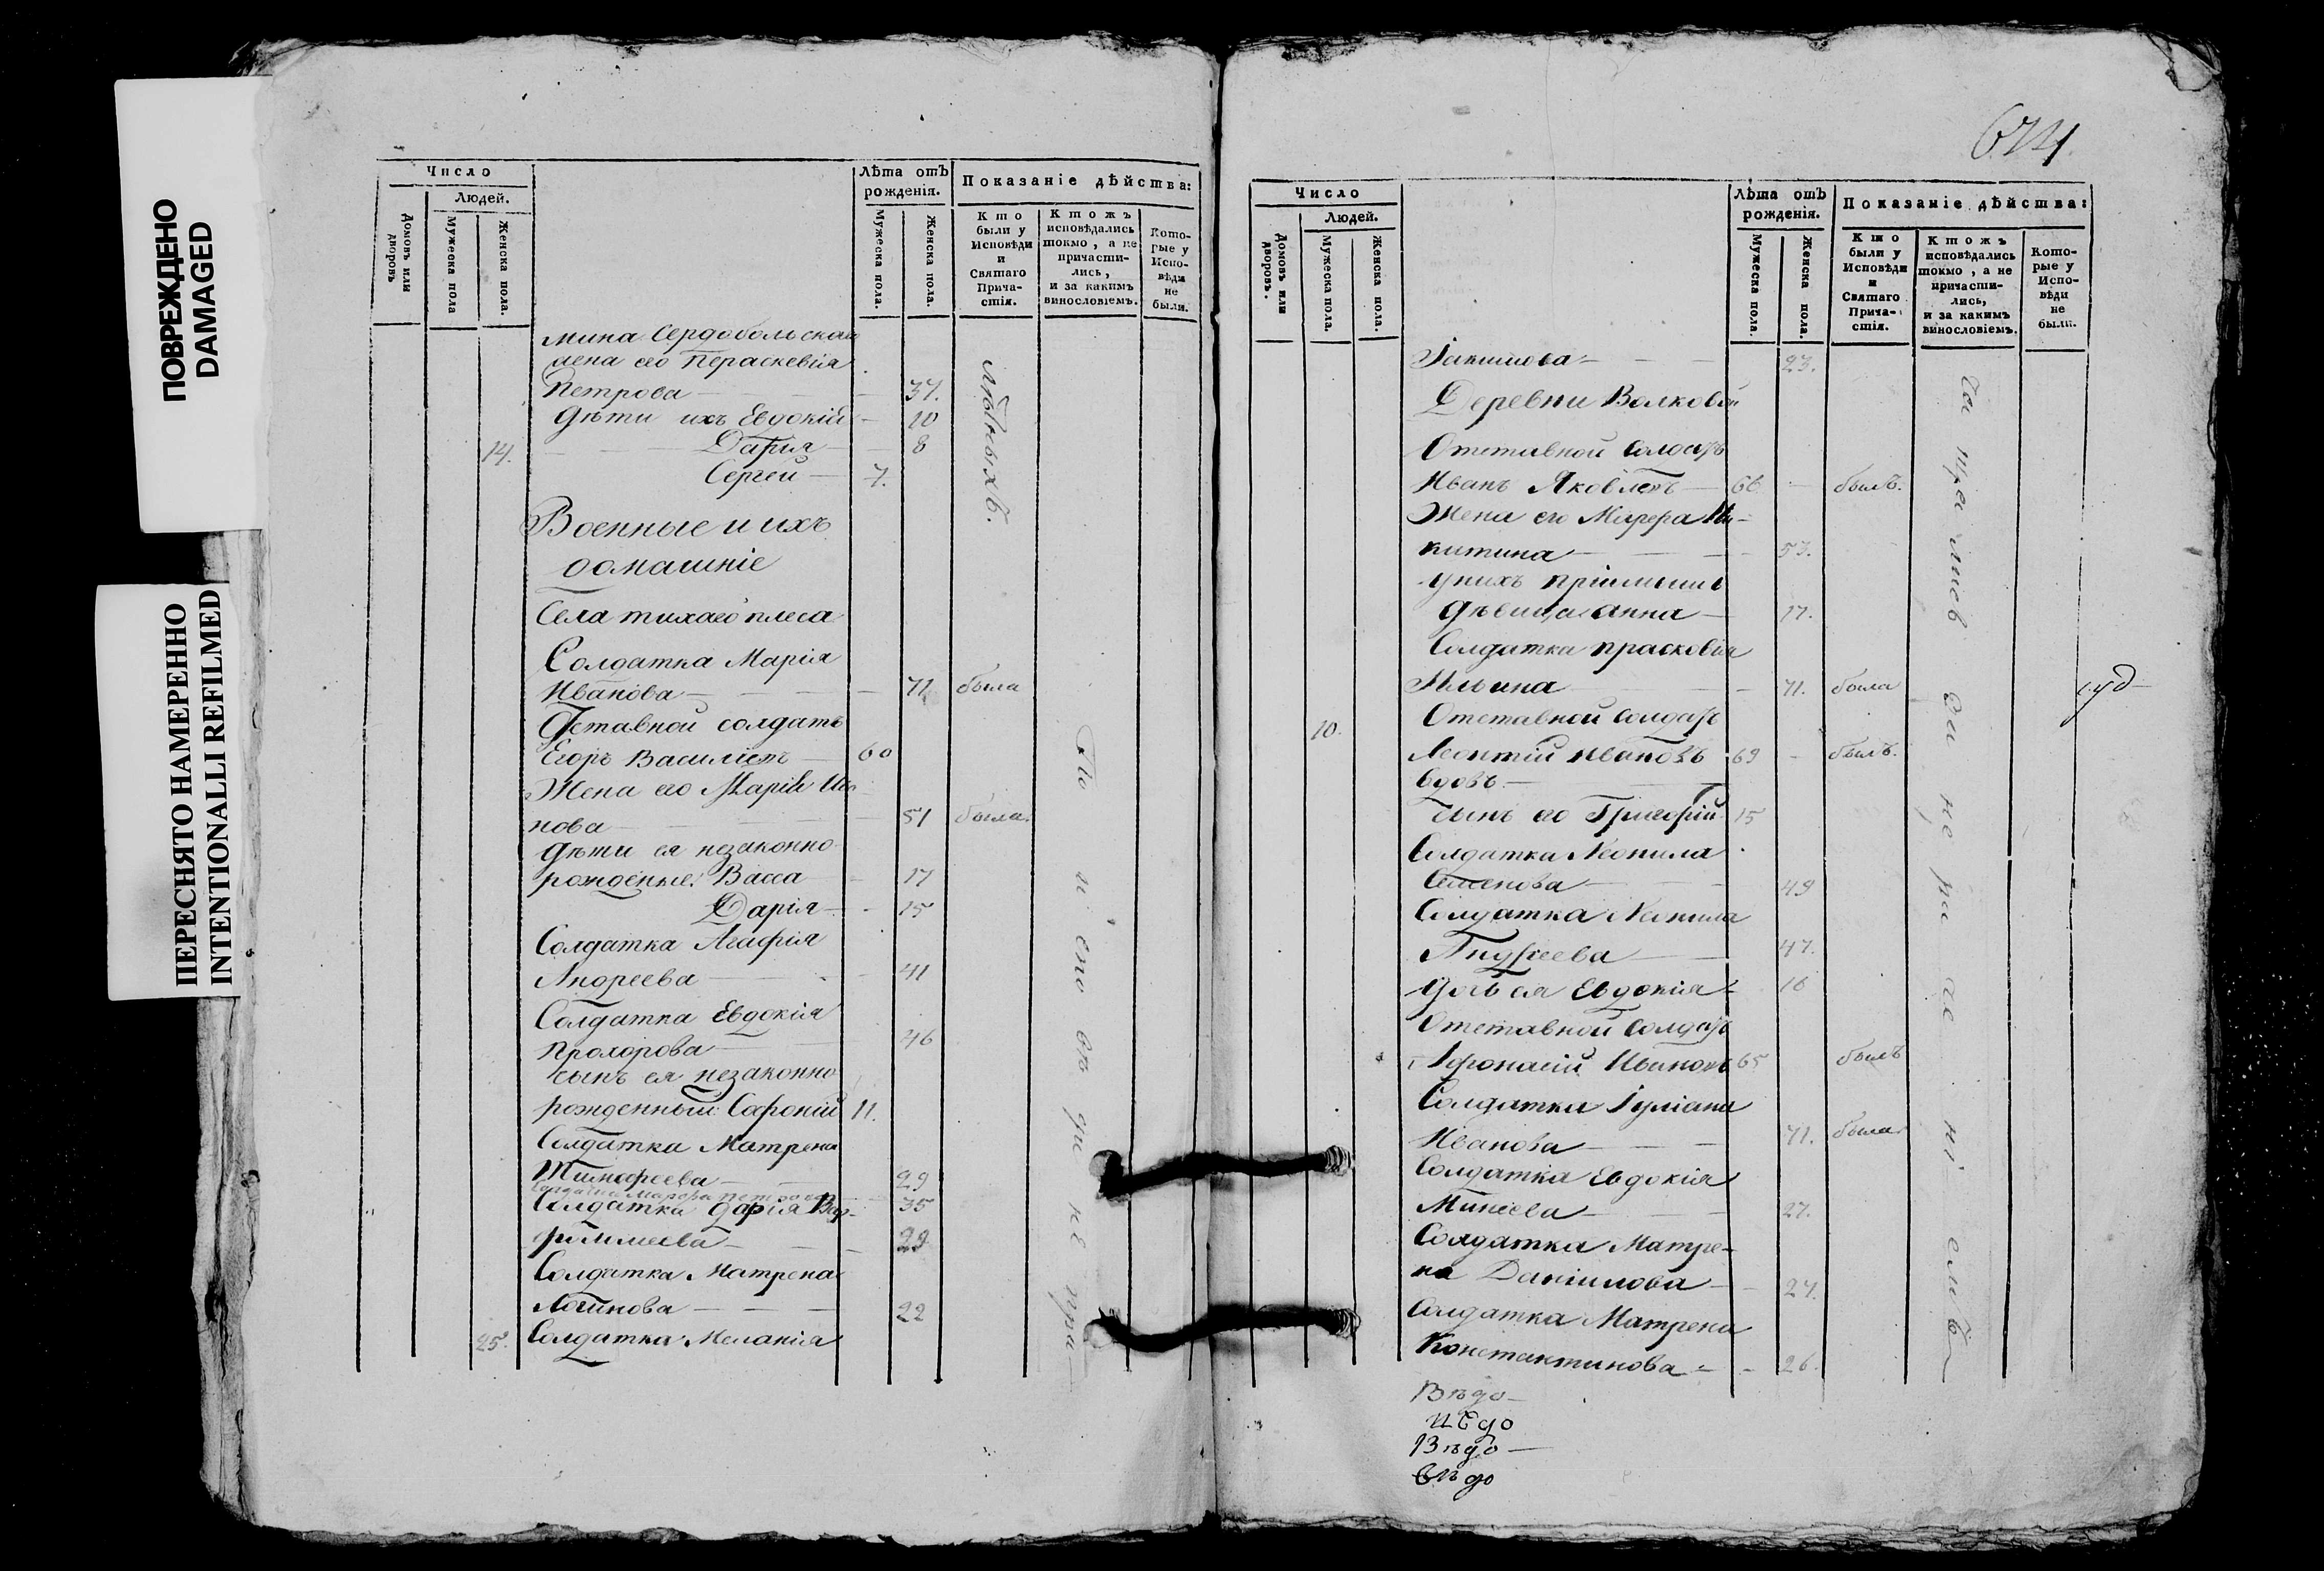 ПОВРЕЖДЕНО
DAMAGED
ПЕРЕСНЯТО НАМЕРЕННО
INTENTIONALLI REFILMED
Число
Людей.
Домовъ или дворовъ
Мужеска пола
Женска пола.
Лѣта отъ
рожденія.
Мужеска пола.
Женска пола.
Показаніе дѣйства:
Кто
были у
Исповѣди
и
Святаго
Прича-
стія.
Ктожъ
исповѣдались
токмо, а не
причасти-
лись,
и за какимъ
винословіемъ.
Кото-
рые у
Испо-
вѣди
не
были.
мина Сердобольской
жена его Пераскевія
Петрова — 37.
дѣти ихъ Евдокій — 10
14. Дарія — 8
Сергей — 7.
Военные и ихъ
домашніе
Села тихаго плеса
Солдатка Марія
Иванова — 71 была
Отставной солдатъ
Егоръ Василіевъ — 60
Жена его Марія
нова — 51 была
дѣти ея незаконно
рожденые: Васса — 17
Дарія — 15
Солдатка Агафія
Андреева — 41
Солдатка Евдокія
Прохорова — 46
сынъ ея незаконно
рожденный: Сафоній 11.
Солдатка Матрена
Тимофеева — 29
Солдатка Марфа Петрова — 35
Солдатка Дарія Вар-
фоломеева — 29
Солдатка Матрена
Логинова — 22
25. Солдатка Меланія
Число
Людей.
Домовъ или дворовъ.
Мужеска пола.
Женска пола.
Лѣта отъ
рожденія.
Мужеска пола.
Женска пола.
Показаніе дѣйства:
Кто
были у
Исповѣди
и
Святаго
Прича-
стія.
Ктожъ
исповѣдались
токмо, а не
причасти-
лись,
и за какимъ
винословіемъ.
Кото-
рые у
Испо-
вѣди
не
были.
Іакимова — 23.
Деревни Волковой
Отставной солдатъ
Иванъ Яковлевъ — 66 былъ.
Жена его Марфа Ни-
китина — 53.
у нихъ
дѣвица Анна — 17.
Солдатка Прасковія
Ильина — 71. была
10. Отставной солдатъ
Леонтій Ивановъ 69 былъ.
вдовъ —
сынъ его Григорій 15
Солдатка Неонила
Семенова — 49
Солдатка Неонила
Андреева — 47.
дочь ея Евдокія — 16
Отставной солдатъ
Афонасій Ивановъ 65 былъ
Солдатка Іуліана
Иванова — 71. была
Солдатка Евдокія
Минеева — 27.
Солдатка Матре-
на Даніилова — 27.
Солдатка Матрена
Константинова — 26.